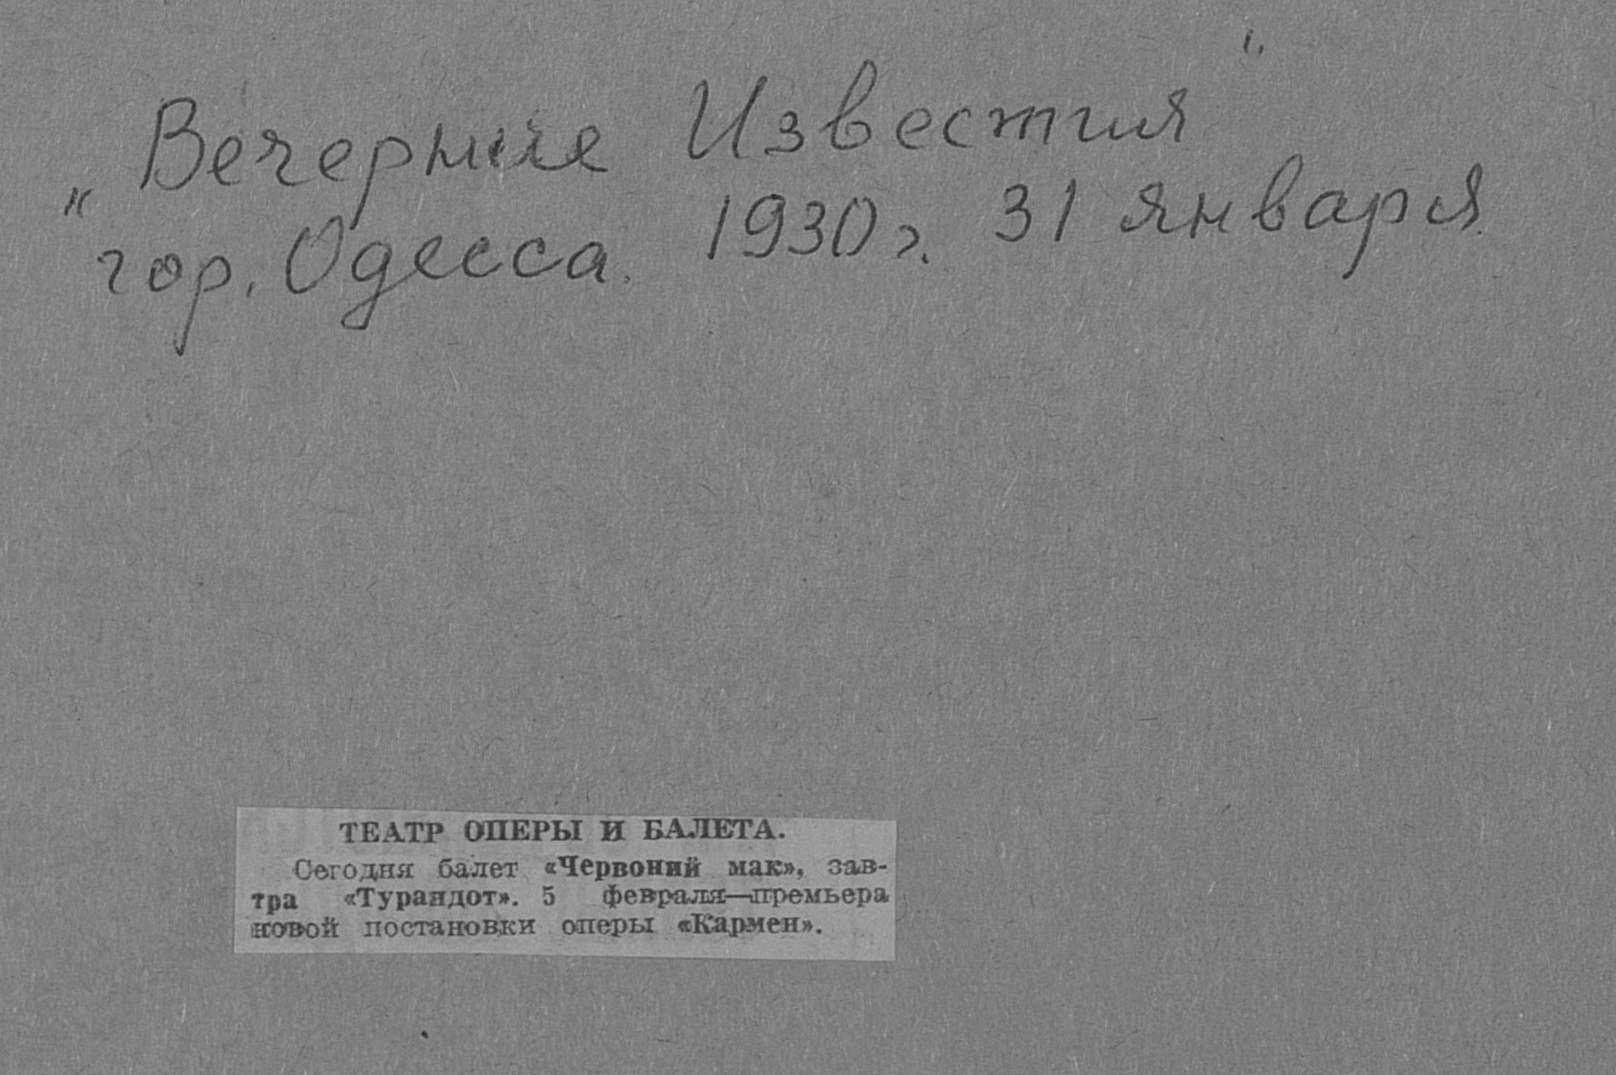 „Вечерние Известия"
гор. Одесса. 1930 г. 31 января.
ТЕАТР ОПЕРЫ И БАЛЕТА.
Сегодня балет «Червоний мак», зав-
тра «Турандот». 5 февраля—премьера
новой постановки оперы «Кармен».